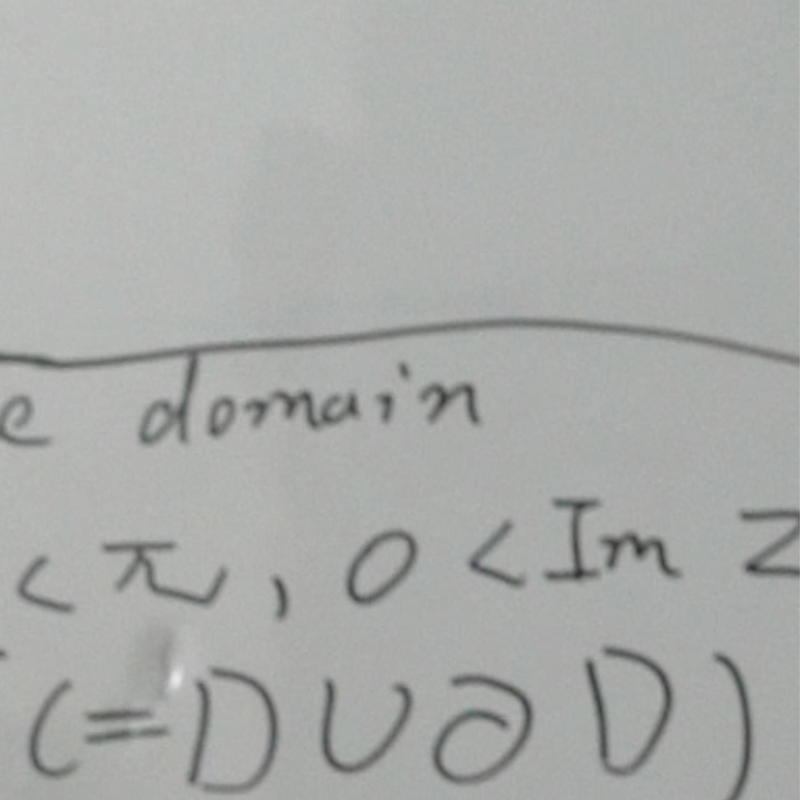 e domain
< π, 0 < Im z
(= D ∪ ∂D)